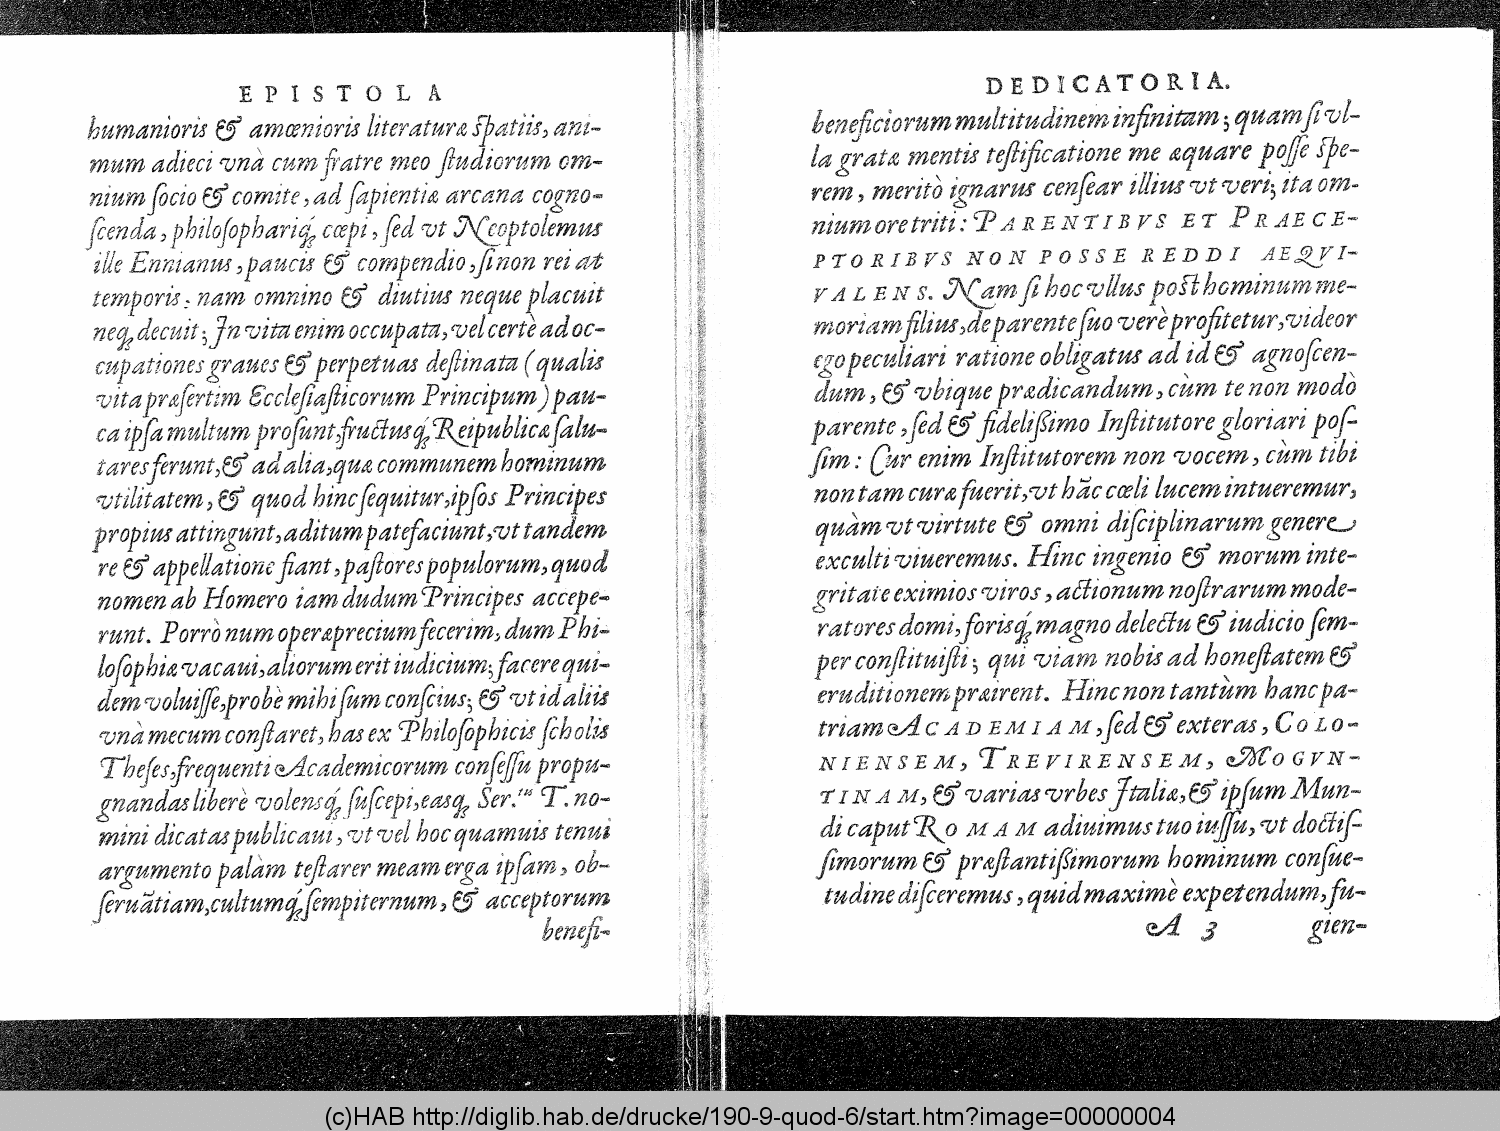 EPISTOLA
humanioris & amœnioris literaturæ ſpatiis, ani-
mum adieci vnà cum fratre meo ſtudiorum om-
nium ſocio & comite, ad ſapientiæ arcana cogno-
ſcenda, philoſophariq́; cœpi, ſed vt Neoptolemus
ille Ennianus, paucis & compendio, ſi non rei at
temporis: nam omnino & diutius neque placuit
neq; decuit; In vita enim occupata, vel certè ad oc-
cupationes graues & perpetuas deſtinata (qualis
vita præſertim Eccleſiaſticorum Principum) pau-
ca ipſa multum proſunt, fructusq́; Reipublicæ ſalu-
tares ferunt, & ad alia, quæ communem hominum
vtilitatem, & quod hinc ſequitur, ipſos Principes
propius attingunt, aditum patefaciunt, vt tandem
re & appellatione fiant, paſtores populorum, quod
nomen ab Homero iam dudum Principes accepe-
runt. Porrò num operæprecium fecerim, dum Phi-
loſophiæ vacaui, aliorum erit iudicium; facere qui-
dem voluiſſe, probè mihi ſum conſcius; & vt id aliis
vnà mecum conſtaret, has ex Philoſophicis ſcholis
Theſes, frequenti Academicorum conſeſſu propu-
gnandas liberè volensq́; ſuſcepi, easq; Ser.ᵐᵃ T. no-
mini dicatas publicaui, vt vel hoc quamuis tenui
argumento palàm teſtarer meam erga ipſam, ob-
ſeruãtiam, cultumq́; ſempiternum, & acceptorum
benefi-
DEDICATORIA.
beneficiorum multitudinem infinitam; quam ſi vl-
la gratæ mentis teſtificatione me æquare poſſe ſpe-
rem, meritò ignarus cenſear illius vt veri; ita om-
nium ore triti: PARENTIBVS ET PRAECE-
PTORIBVS NON POSSE REDDI AEQVI-
VALENS. Nam ſi hoc vllus poſt hominum me-
moriam filius, de parente ſuo verè profitetur, videor
ego peculiari ratione obligatus ad id & agnoſcen-
dum, & vbique prædicandum, cùm te non modò
parente, ſed & fideliſsimo Inſtitutore gloriari poſ-
ſim: Cur enim Inſtitutorem non vocem, cùm tibi
non tam curæ fuerit, vt hãc cœli lucem intueremur,
quàm vt virtute & omni diſciplinarum genere
exculti viueremus. Hinc ingenio & morum inte-
gritate eximios viros, actionum noſtrarum mode-
ratores domi, forisq́; magno delectu & iudicio ſem-
per conſtituiſti; qui viam nobis ad honeſtatem &
eruditionem præirent. Hinc non tantùm hanc pa-
triam ACADEMIAM, ſed & exteras, COLO-
NIENSEM, TREVIRENSEM, MOGVN-
TINAM, & varias vrbes Italiæ, & ipſum Mun-
di caput ROMAM adiuimus tuo iuſſu, vt doctiſ-
ſimorum & præſtantiſsimorum hominum conſue-
tudine diſceremus, quid maximè expetendum, fu-
A 3 gien-
(c)HAB http://diglib.hab.de/drucke/190-9-quod-6/start.htm?image=00000004